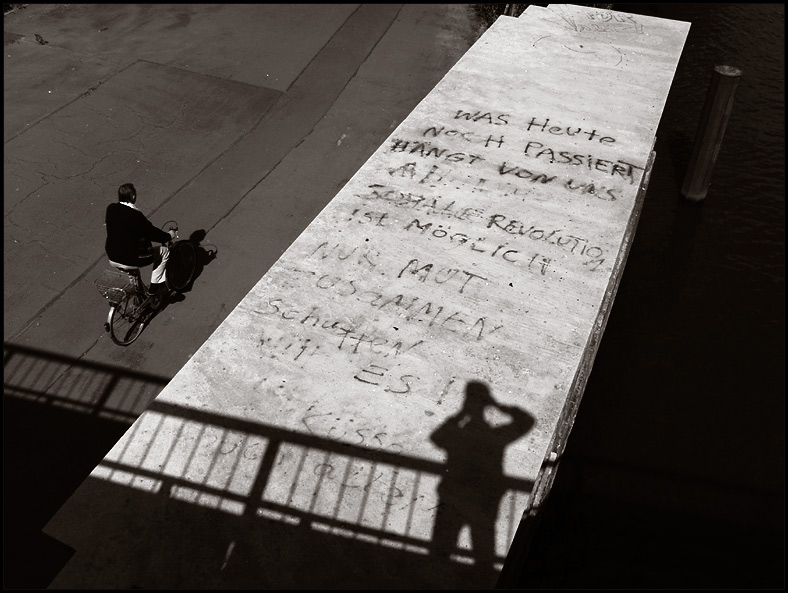 WAS Heute
NOCH PASSIERT
HÄNGT VON UNS
SOZIALE REVOLUTION
IST MÖGLICH
NUR MUT
ZUSAMMEN
SCHAFFEN
WIR
ES!
KÜSSE